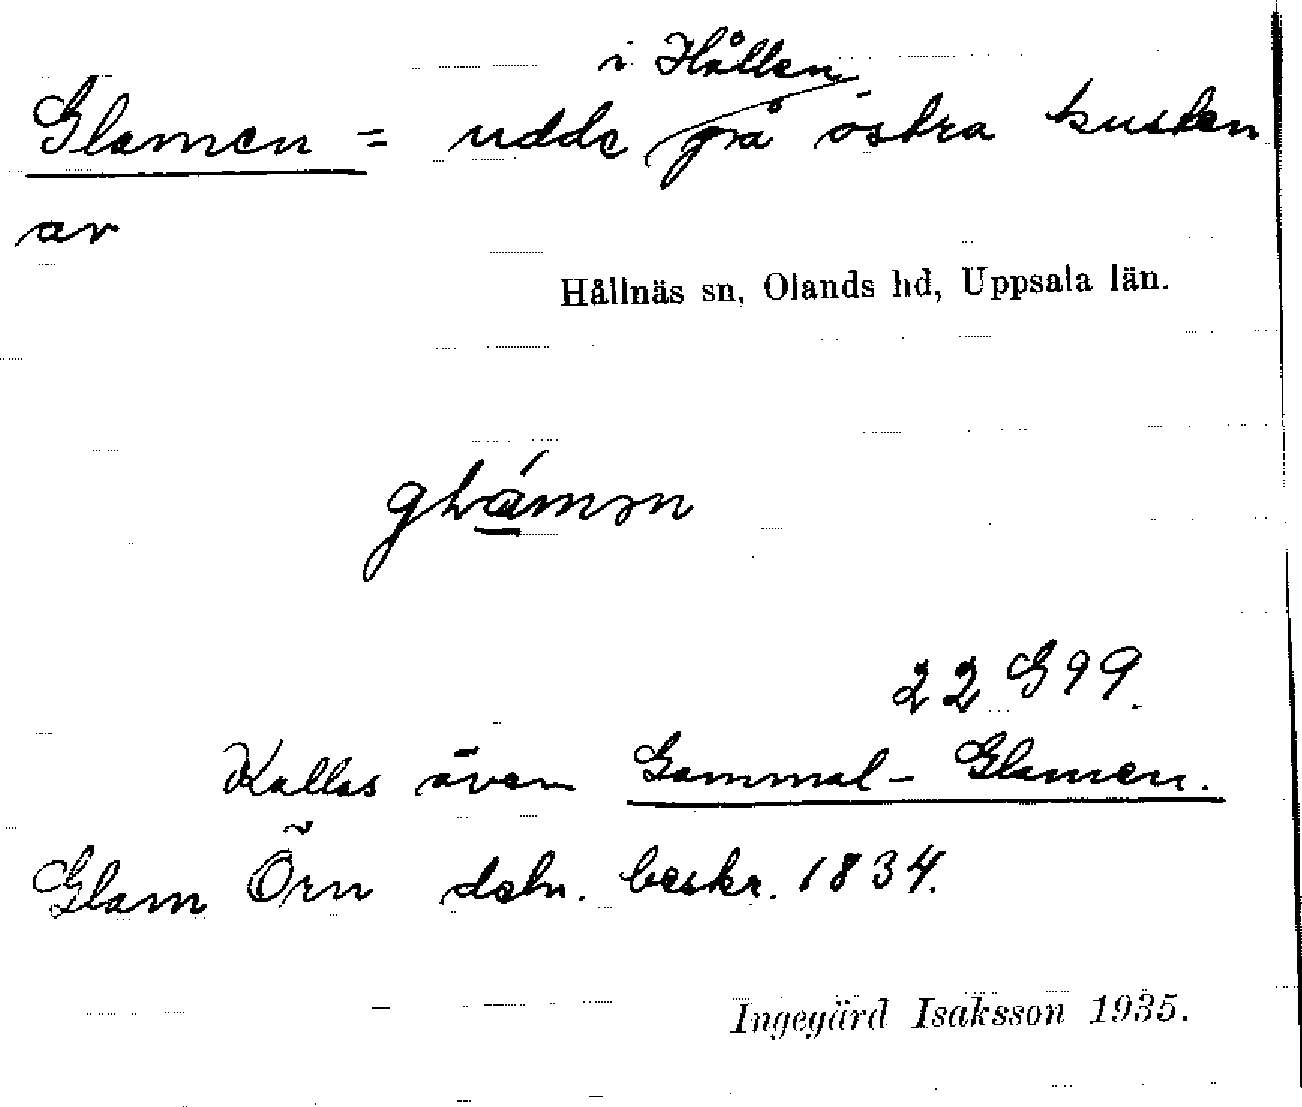 i Hållen
Glamen = udde på östra kusten
av
Hållnäs sn, Olands hd, Uppsala län.
22 G 99.
Kallas även Gammal-Glamen.
Glam Örn dsbr. beskr. 1834.
Ingegärd Isaksson 1935.